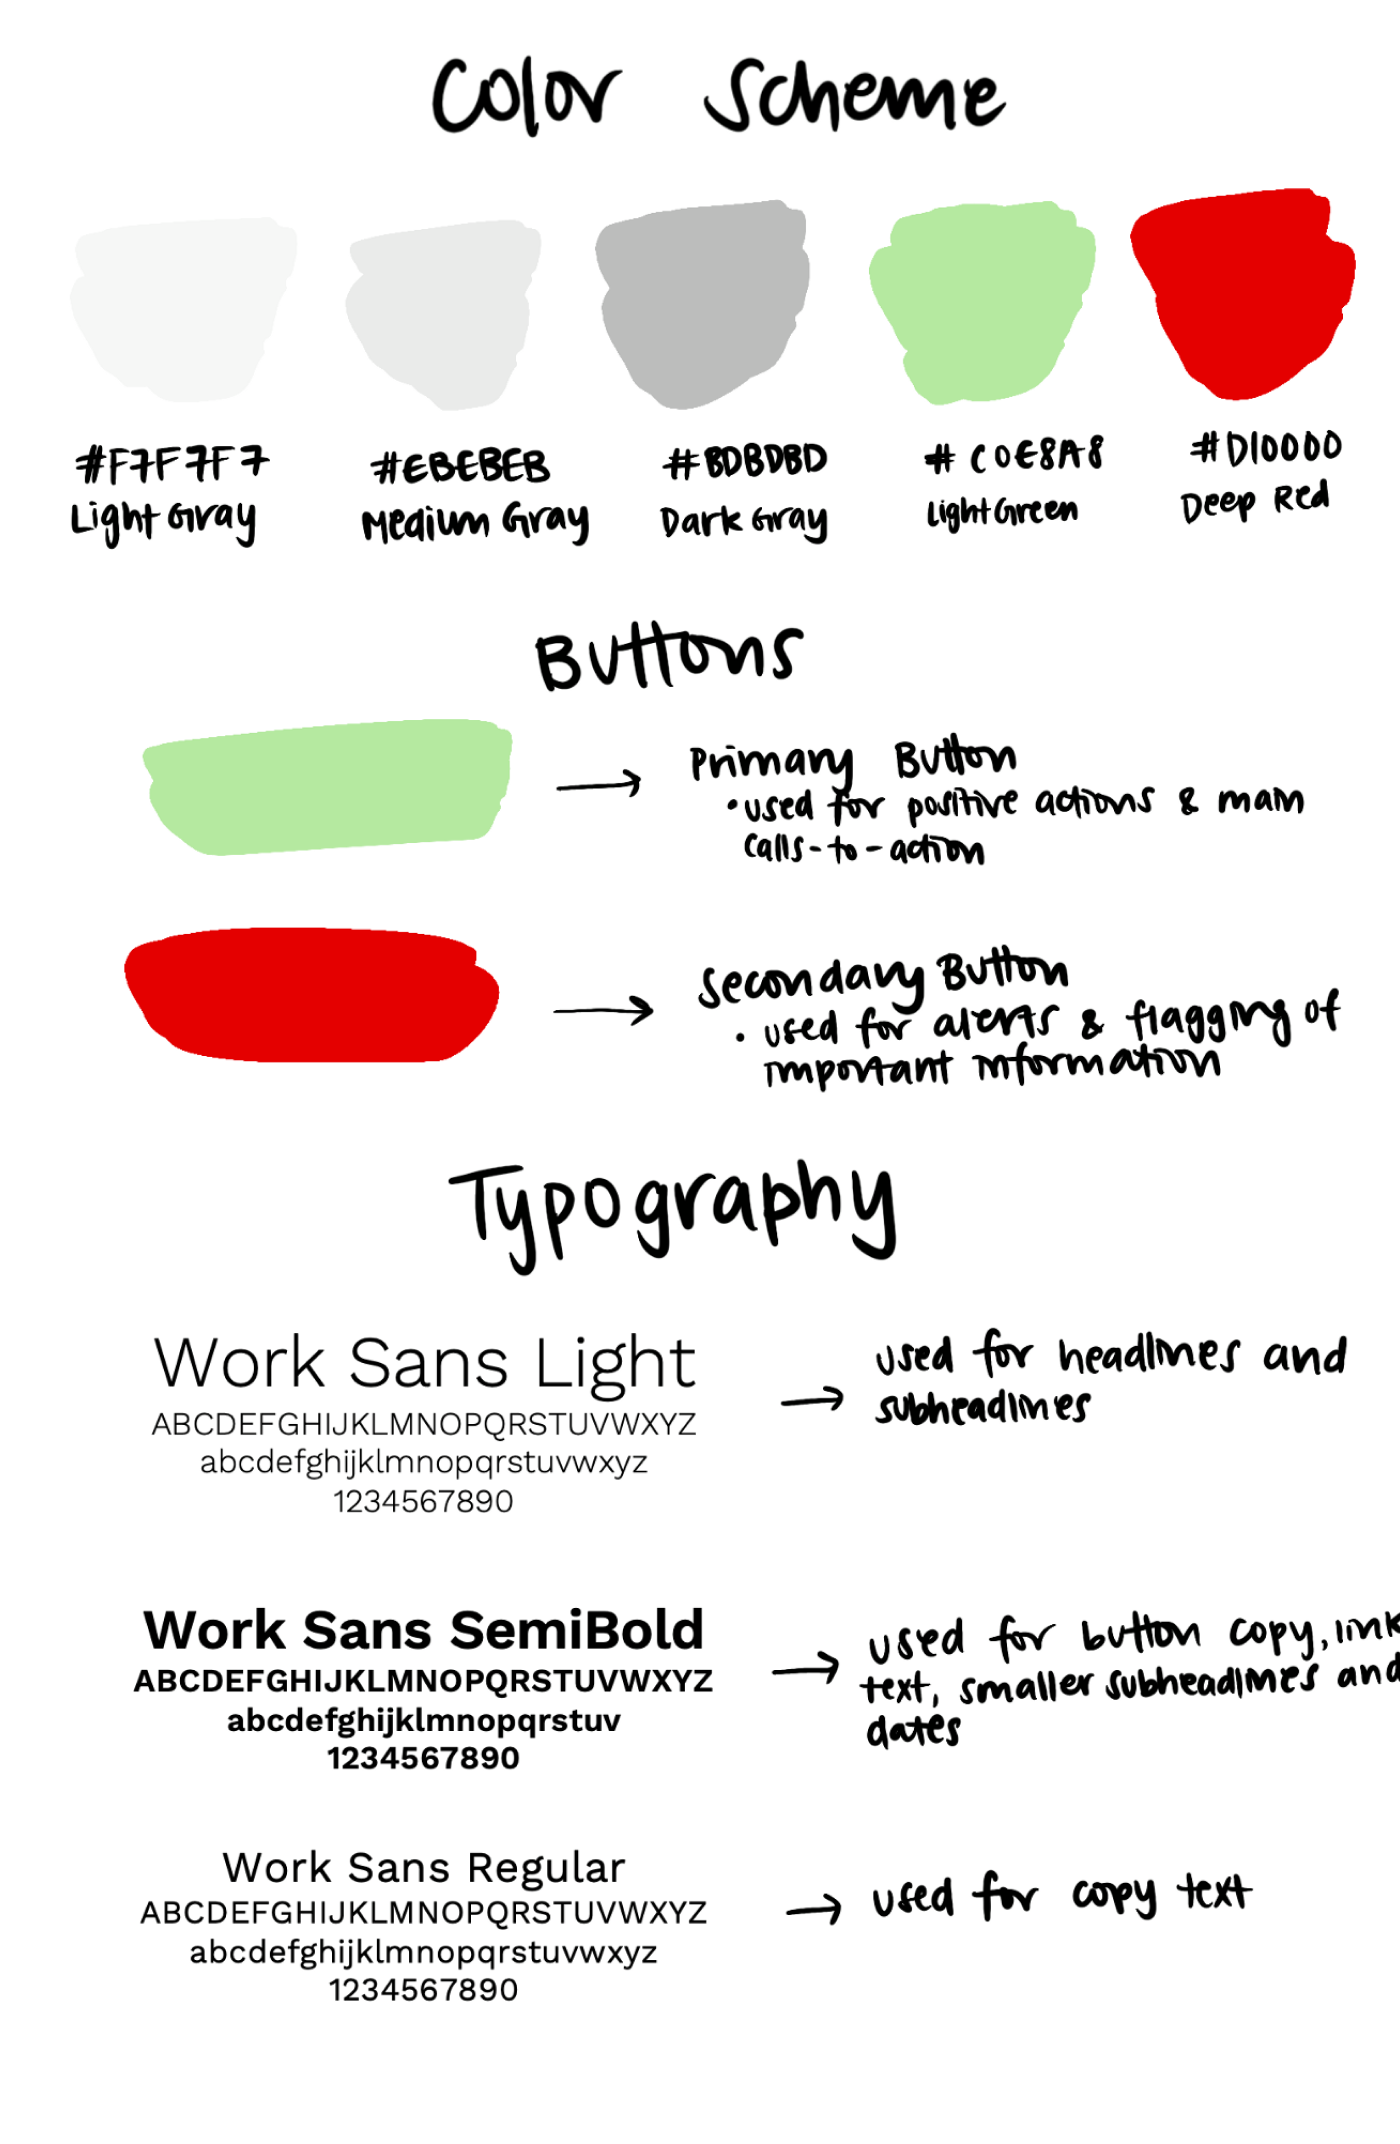 Color Scheme
#F7F7F7 #EBEBEB #BDBDBD #C0E8A8 #D10000
Light Gray Medium Gray Dark Gray Light Green Deep Red
Buttons
Primary Button
• used for positive actions & main
calls-to-action
Secondary Button
• used for alerts & flagging of
important information
Typography
Work Sans Light
ABCDEFGHIJKLMNOPQRSTUVWXYZ
abcdefghijklmnopqrstuvwxyz
1234567890
used for headlines and
subheadlines
Work Sans SemiBold
ABCDEFGHIJKLMNOPQRSTUVWXYZ
abcdefghijklmnopqrstuv
1234567890
used for button copy, link
text, smaller subheadlines and
dates
Work Sans Regular
ABCDEFGHIJKLMNOPQRSTUVWXYZ
abcdefghijklmnopqrstuvwxyz
1234567890
used for copy text